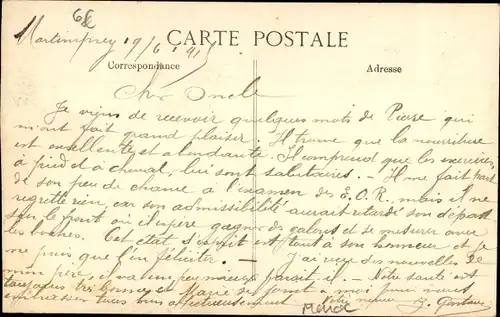 68
Martimprey 19/6/15
CARTE POSTALE
Correspondance
Adresse
Cher Oncle
Je viens de recevoir quelques mots de Pierre qui
m'ont fait grand plaisir. Il trouve que la nourriture
est excellente et abondante. Il comprend que les exercices
à pied et à cheval, lui sont salutaires. - Il me fait part
de son peu de chance à l'examen des E.O.R. mais il ne
regrette rien, car son admissibilité aurait retardé son départ
sur le front où il espère gagner des galons et se mesurer avec
les boches. Cet état d'esprit est tout à son honneur et je
ne puis que l'en féliciter. - J'ai reçu des nouvelles de
mon père, il va un peu mieux paraît-il. - Notre santé est
toujours très bonne et Marie se joint à moi pour vous
embrasser tous bien affectueusement
Votre neveu
Maroc